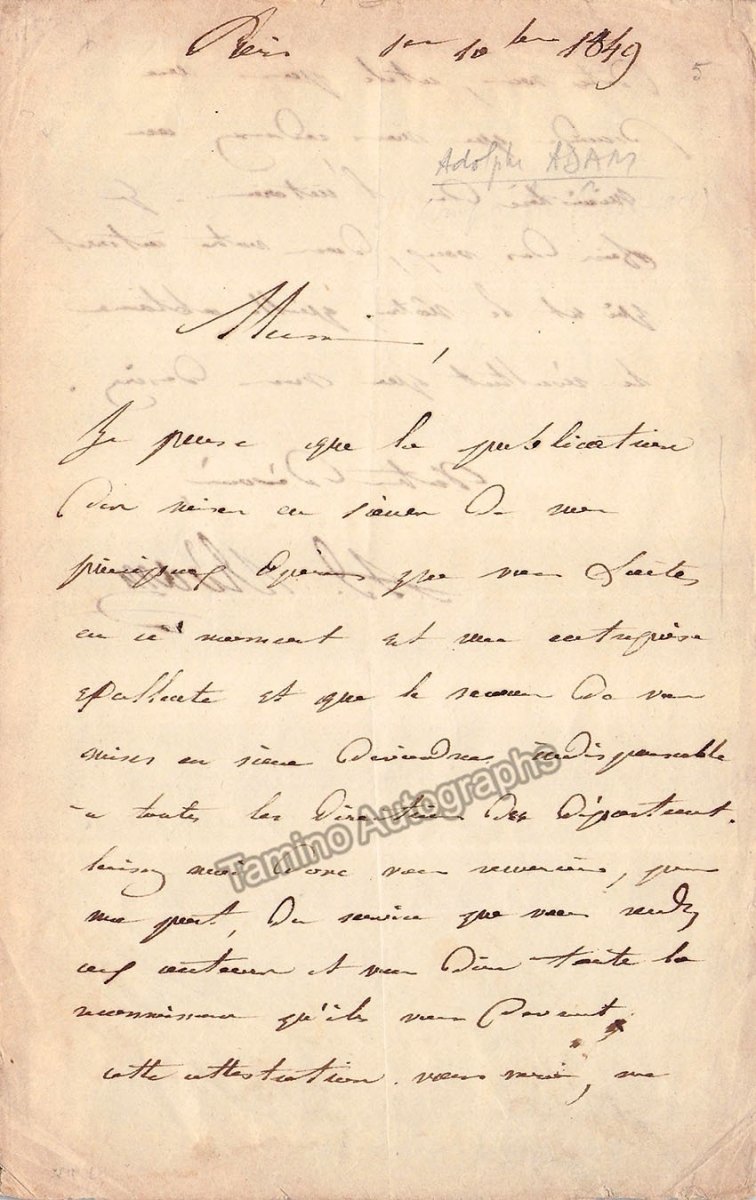 Paris 1er 10bre 1849
5
Adolphe ADAM
Monsieur,
Je pense que la publication
des mises en scène de nos
principaux opéras que vous faites
en ce moment est une entreprise
excellente et que le recueil de vos
mises en scène deviendra indispensable
à toutes les directions des départements.
Laissez moi donc vous remercier, pour
ma part, du service que vous rendez
aux auteurs et vous dire toute la
reconnaissance qu'ils vous doivent
cette attestation
Tamino Autographs